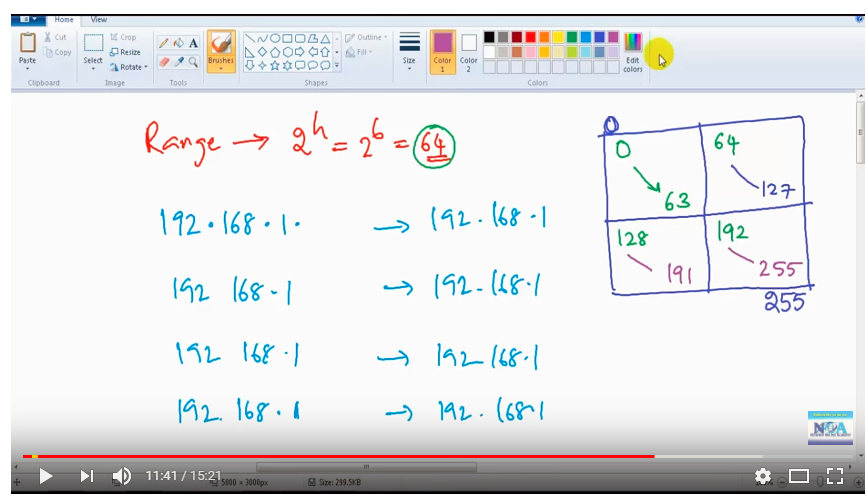 Home View
Cut
Copy
Paste
Clipboard
Crop
Resize
Rotate
Select
Image
Tools
Brushes
Outline
Fill
Shapes
Size
Color 1
Color 2
Edit colors
Colors
Range → 2^h = 2^6 = 64
192.168.1. → 192.168.1
192 168.1 → 192.168.1
192 168.1 → 192 168.1
192.168.1 → 192.168.1
0
0 63
64 127
128 191
192 255
255
NQA
11:41 / 15:21
5000 × 3000px
Size: 299.5KB